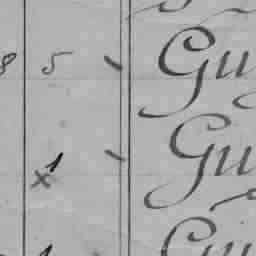 8 5 Gu
1 x Gu
1 Gu